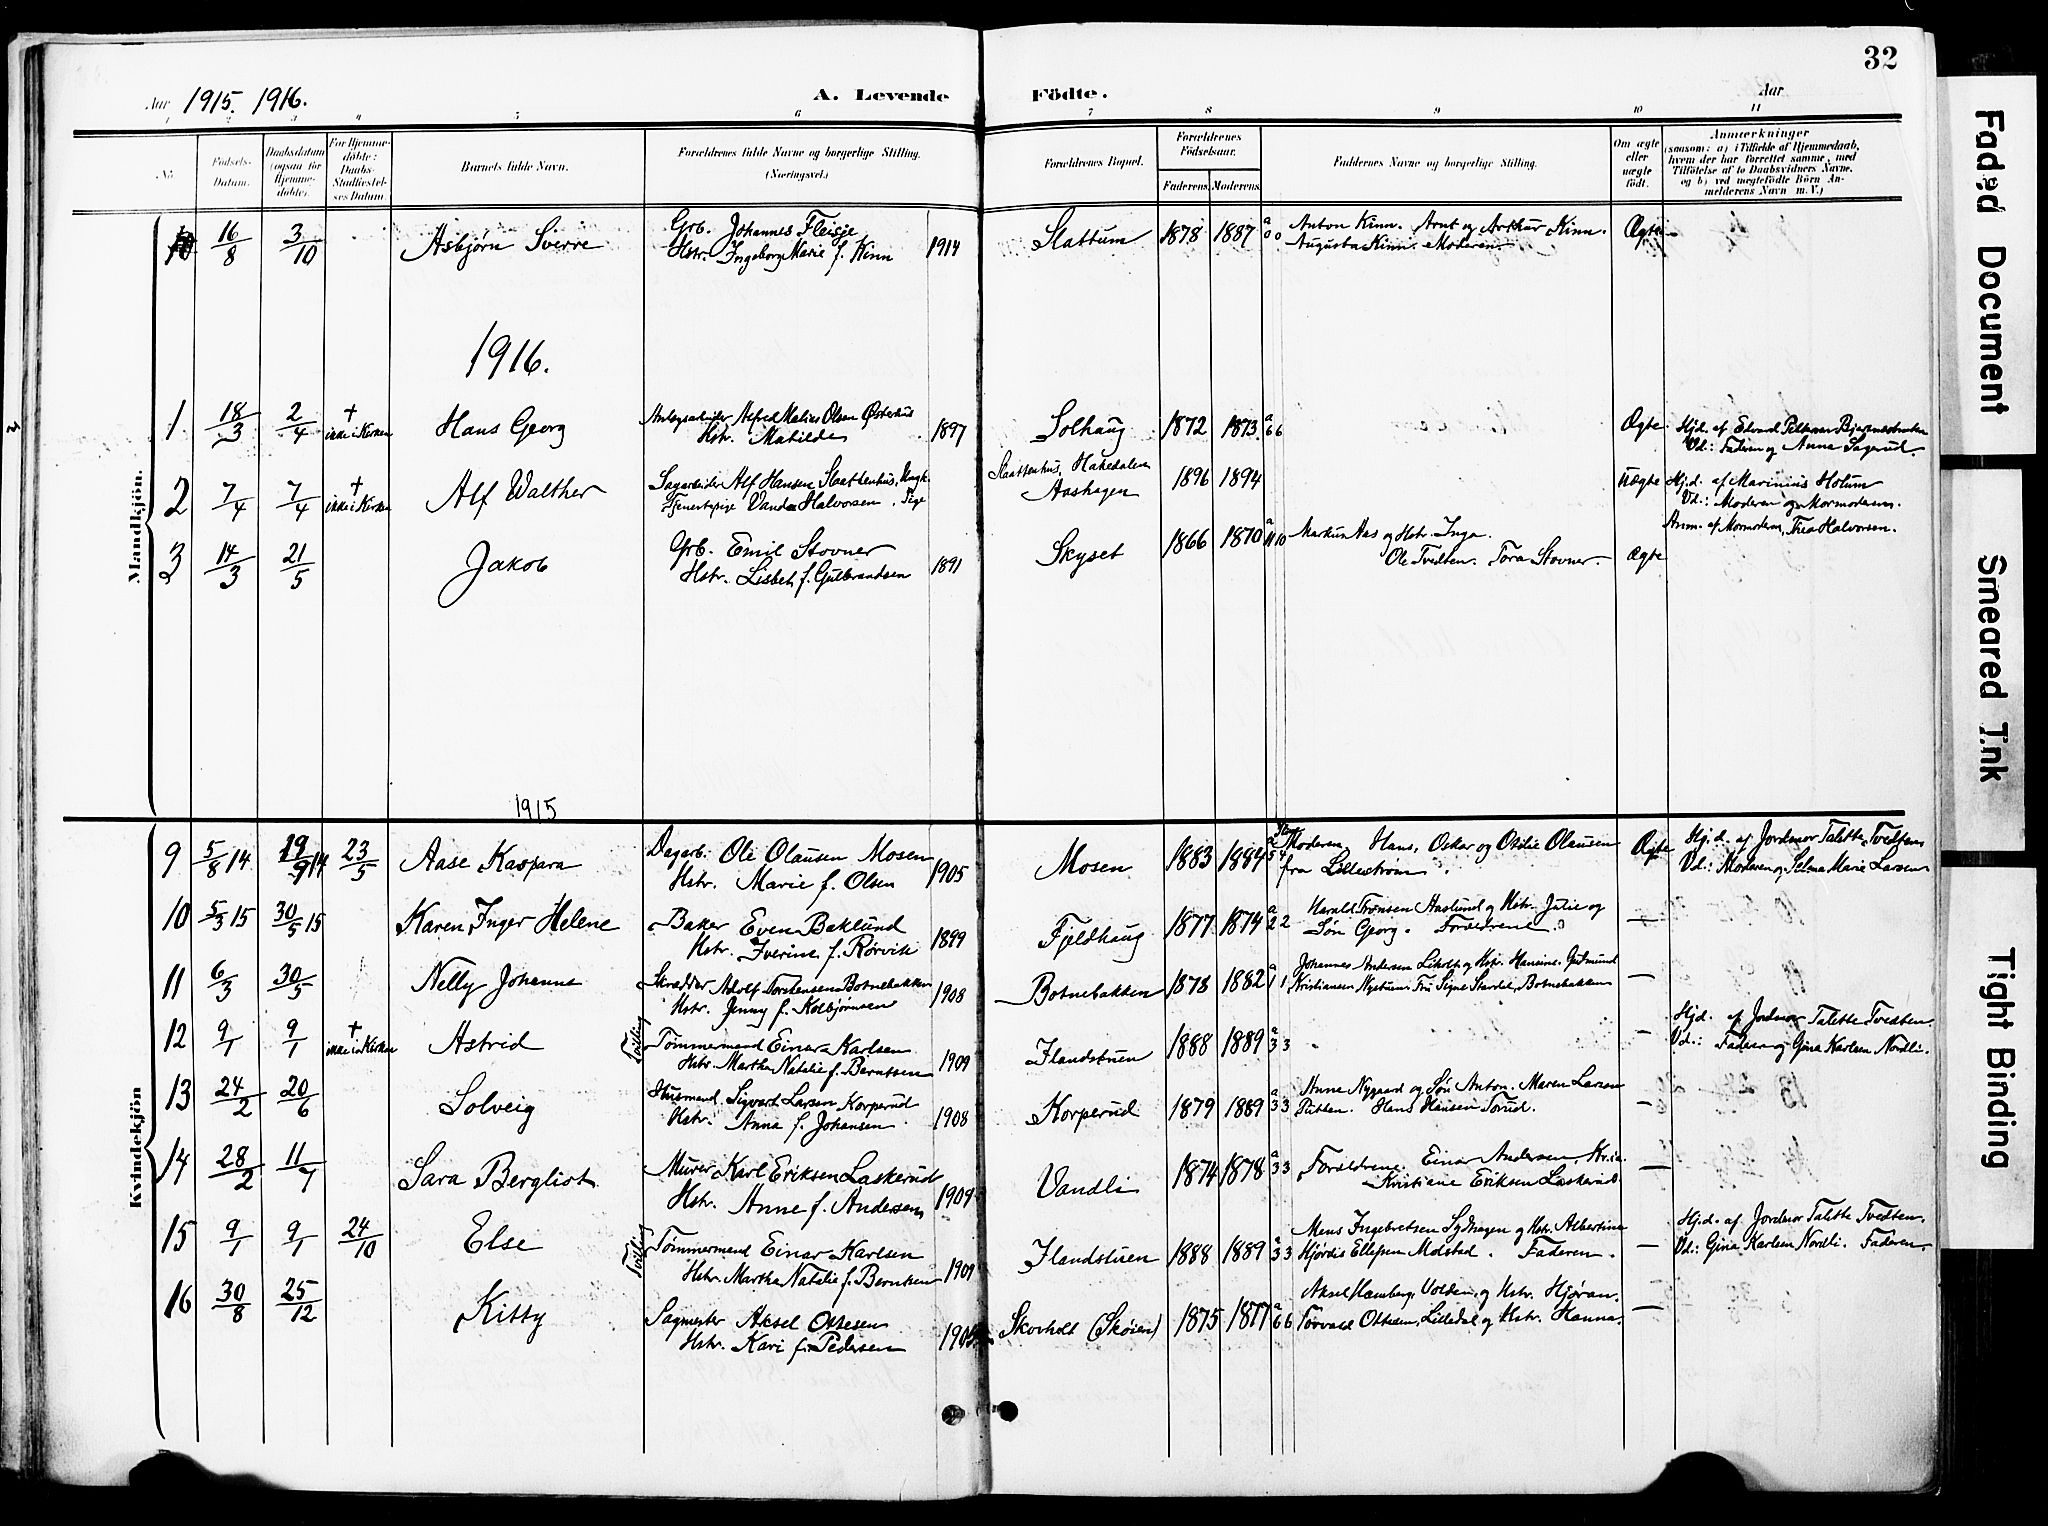 32
Aar 1915. 1916. A. Levende Födte. Aar
1 2 3 4 5 6 7 8 9 10 11
No. Födsels-Datum. Daabsdatum (ogsaa for Hjemmedøbte). For Hjemmedøbte: Daabs-Stadfæstelses Datum. Barnets fulde Navn. Forældrenes fulde Navne og borgerlige Stilling. (Næringsvei.) Forældrenes Bopæl. Forældrenes Födselsaar. Faderens. Moderens. Faddernes Navne og borgerlige Stilling. Om ægte eller uægte födt. Anmærkninger (saasom: a) i Tilfælde af Hjemmedaab, hvem der har forrettet samme, med Tilföielse af to Daabsvidners Navne, og b) ved uægtefödte Börn Anmelderens Navn m. V.)
Mandkjön.
10 16/8 3/10 Asbjørn Sverre Grb. Johannes Fleisje 1914 Slattum 1878 1887 a 0 0 Anton Kinn. Arnt og Arthur Kinn. Ægte
Hstr. Ingeborg Marie f. Kinn Augusta Kinn. Moderen.
1916.
1 18/3 2/4 + ikke i Kirken Hans Georg Anlægsarbeider Alfred Matius Olsen Østerhus 1897 Solhaug 1872 1873 a 6 6 Ægte Hjd. af Edvard Pettersen
Hstr. Mathilde Vd.: Faderen og Anna Sagerud.
2 7/4 7/4 + ikke i Kirken Alf Walther Sagarbeider Alf Hansen Slaattenhus, Ungk. Slaattenhus, Hakedalen 1896 1894 Uægte Hjd. af Marinius Holum
Tjenestepige Vanda Halvorsen. Pige Aashagen Vd.: Moderen og Mormoderen.
Anm. af Mormoderen, Thea Halvorsen.
3 14/3 21/5 Jakob Grb. Emil Stovner 1891 Skyset 1866 1870 a 11 10 Markus Aas og Hstr. Inga. Ægte
Hstr. Lisbet f. Gulbrandsen Ole Tvedten. Tora Stovner.
1915
Kvindekjön
9 5/8 14 19/9 14 23/5 Aase Kaspara Dagarb. Ole Olausen Mosen 1905 Mosen 1883 1884 a 5 4 Moderen, Hans, Oskar og Otilie Olausen Ægte Hjd. af Jordmor Talette Tvedten
Hstr. Marie f. Olsen fra Lillestrøm. Vd.: Moderen og Selma Marie Larsen
10 5/3 15 30/5 15 Karen Inger Helene Baker Even Baklund 1899 Fjeldhaug 1877 1874 a 2 2 Harald Tronsen Aaslund og Hstr. Julie og —
Hstr. Iverine f. Rørvik Søn Georg. Forældrene.
11 6/3 30/5 Nelly Johanne Skrædder Adolf Torstensen Botnebakken 1908 Botnebakken 1878 1882 a 1 1 Johannes Andersen Likolt og Hstr. Hansine. Gudmund —
Hstr. Jenny f. Kolbjørnsen Kristiansen Nystuen. Fru Signe Botnebakken
12 9/1 9/1 + ikke i Kirken Astrid Tvilling Tømmermand Einar Karlsen 1909 Flandstuen 1888 1889 a 3 3 — Hjd. af Jordmor Talette Tvedten.
Hstr. Martha Natalie f. Berntsen Vd.: Faderen og Gina Karlsen Nordli.
13 24/2 20/6 Solveig Husmand Sigvart Larsen Korperud 1908 Korperud 1879 1889 a 3 3 Anne Nygaard og Søn Anton. Maren Larsen —
Hstr. Anna f. Johansen. Putten. Hans Hansen Torud.
14 28/2 11/7 Sara Bergliot Murer Karl Eriksen Laskerud 1909 Vandli 1874 1878 a 3 3 Forældrene. Einar Andersen, Kria. —
Hstr. Anne f. Andersen Kristiane Eriksen Laskerud.
15 9/1 9/1 24/10 Else Tvilling Tømmermand Einar Karlsen 1909 Flandstuen 1888 1889 a 3 3 Mens Ingebretsen Sydhagen og Hstr. Albertine — Hjd. af Jordmor Talette Tvedten.
Hstr. Martha Natalie f. Berntsen Hjørdis Ellefsen Molstad. Faderen. Vd.: Gina Karlsen Nordli. Faderen.
16 30/8 25/12 Kitty Sagmester Aksel Ottesen Skovholt (Skøien) 1875 1877 a 6 6 Aksel Hamberg, Volden, og Hstr. Hjøran. —
Hstr. Kari f. Pedersen Torvald Ottesen, Lilledal og Hstr. Hanna.
Faded Document
Smeared Ink
Tight Binding